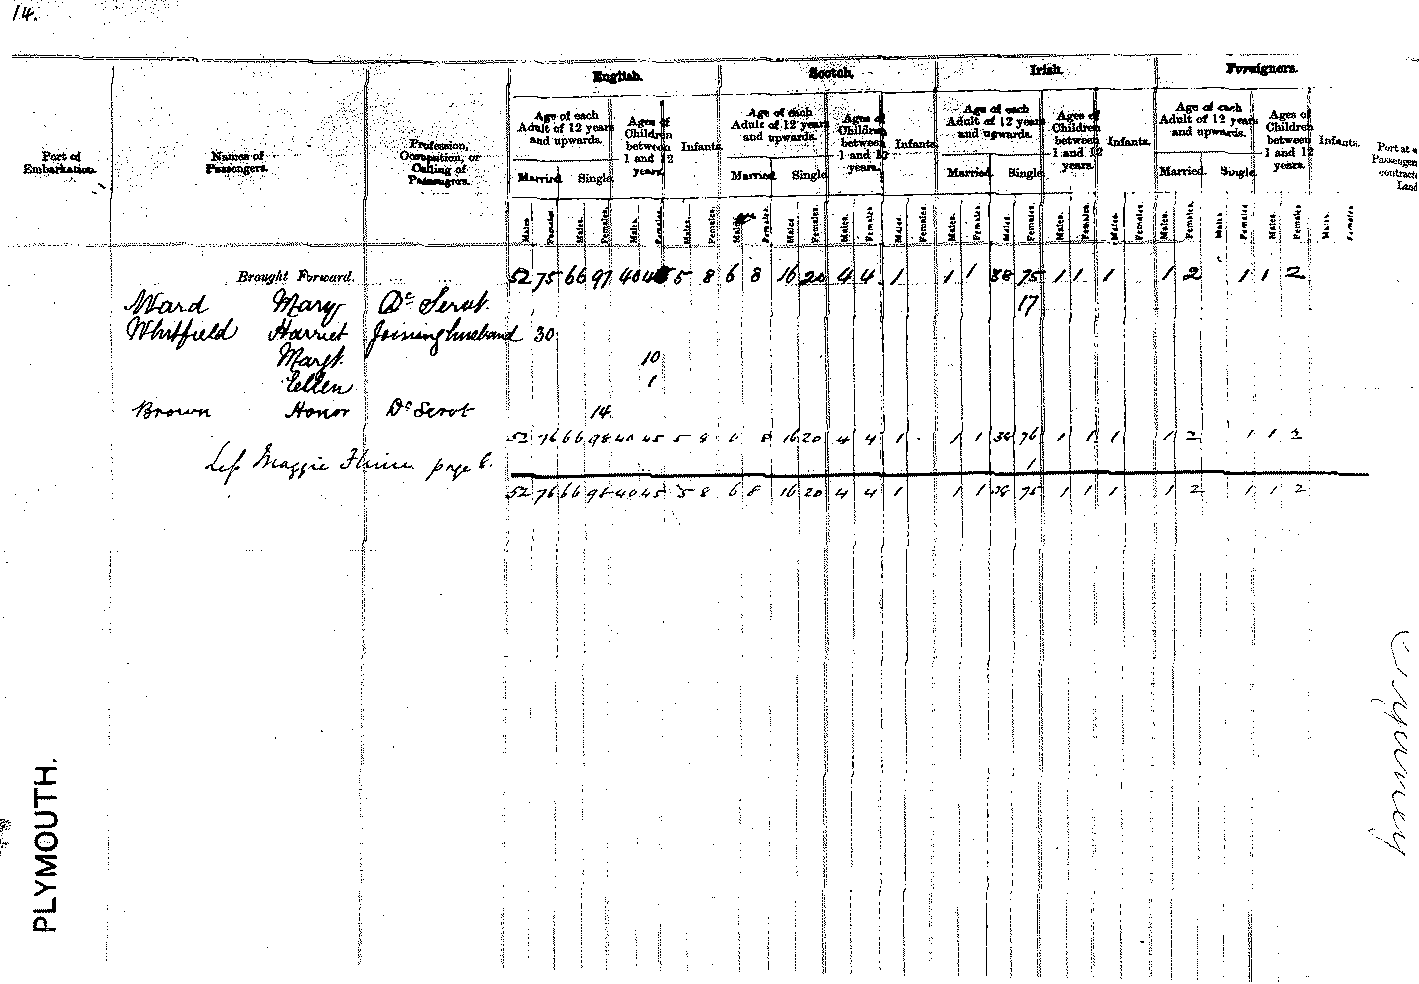 14.
English. Scotch. Irish. Foreigners.
Port of Embarkation. Names of Passengers. Profession, Occupation, or Calling of Passengers. Age of each Adult of 12 years and upwards. Ages of Children between 1 and 12 years. Infants. Age of each Adult of 12 years and upwards. Ages of Children between 1 and 12 years. Infants. Age of each Adult of 12 years and upwards. Ages of Children between 1 and 12 years. Infants. Age of each Adult of 12 years and upwards. Ages of Children between 1 and 12 years. Infants. Port at Passengers contracte Land
Married. Single. Married. Single. Married. Single. Married. Single.
Males. Females. Males. Females. Males. Females. Males. Females. Males. Females. Males. Females. Males. Females. Males. Females. Males. Females. Males. Females. Males. Females. Males. Females. Males. Females. Males. Females. Males. Females. Males. Females.
Brought Forward. 52 75 66 97 40 5 8 6 8 16 20 4 4 1 1 1 38 75 1 1 1 1 2 1 1 2
Ward Mary Dc Servt. 17
Whitfield Harriet Joining husband 30
Margt. 10
Ellen 1
Brown Honor Dc Servt 14
52 76 66 98 40 45 5 8 6 8 16 20 4 4 1 1 1 38 76 1 1 1 1 2 1 1 2
Maggie page 8. 1
52 76 66 98 40 45 5 8 6 8 16 20 4 4 1 1 1 38 75 1 1 1 1 2 1 1 2
PLYMOUTH.